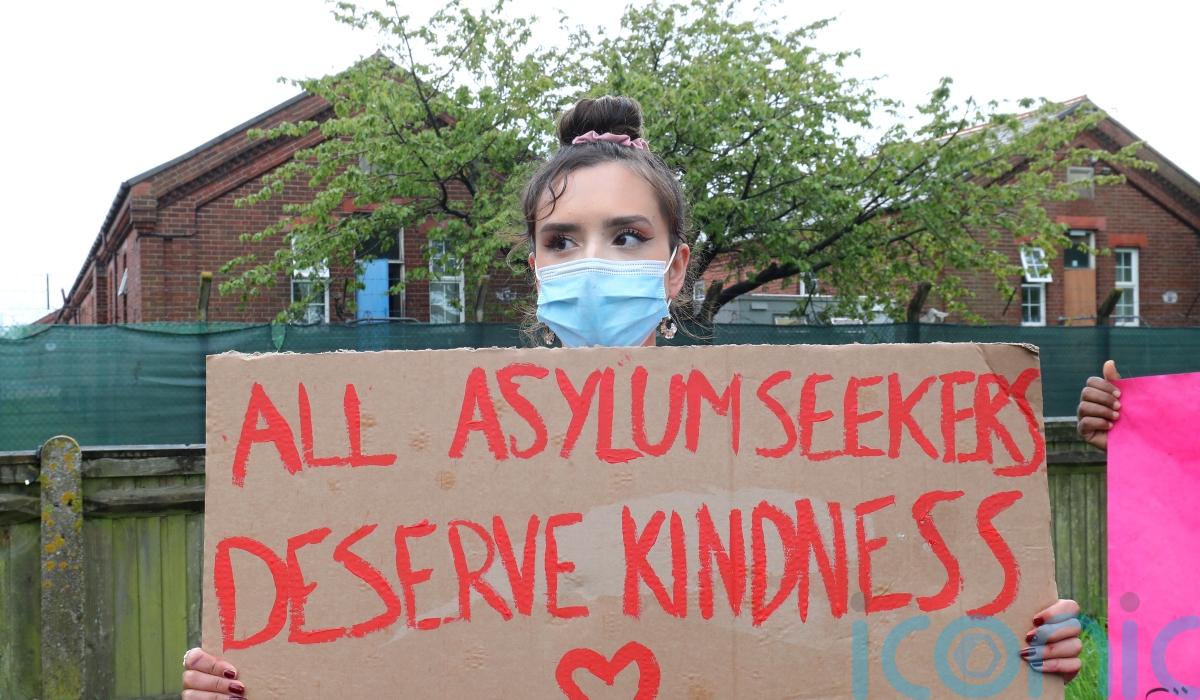 ALL ASYLUM SEEKERS
DESERVE KINDNESS
iconic